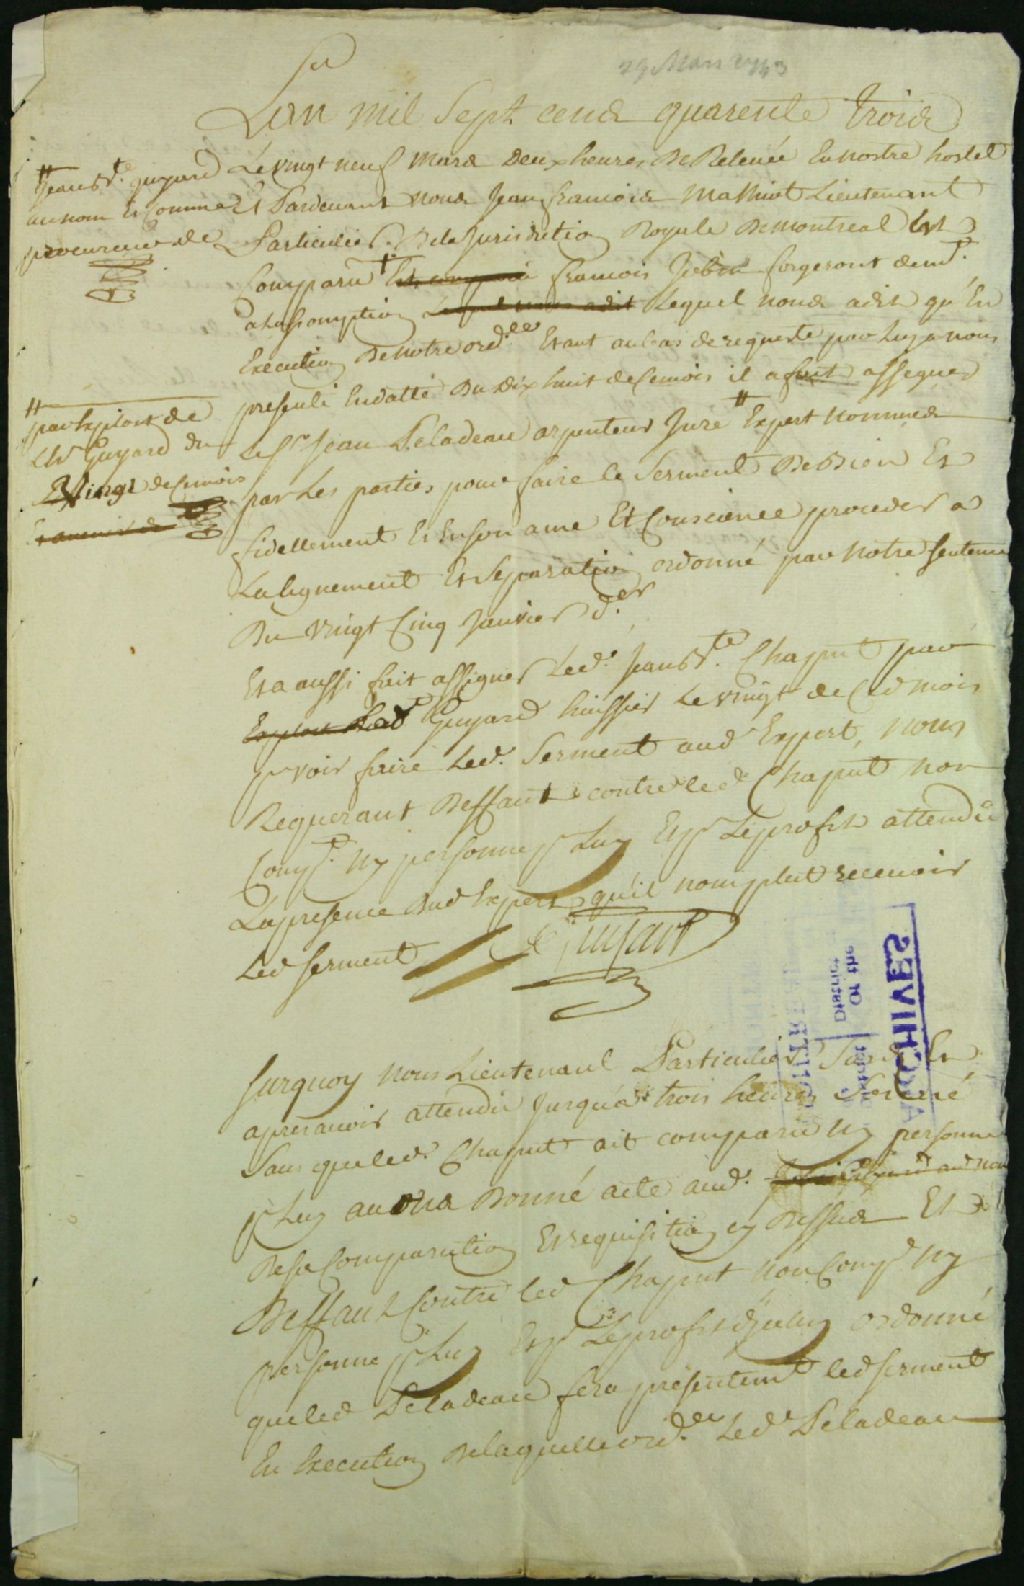 29 Mars 1743
Lan mil Sept cens quarente trois
Le vingt neuf mars deux heures De Relevée En nostre hostel
Et Pardevant nous Jean francois Malhiot Lieutenant
Particulier De la Jurisdiction Royale De montreal Est
Comparu francois Jobin forgeront demt.
a Lassomption Lequel nous a dit qu'En
Execution De notre ordce. Etant au bas de requeste par Luy a nous
presenté En datte Du Dix huit de Ce mois il a fait assigner
Le Sr Jean Peladeau arpenteur Juré Expert nommés
par Les parties pour faire le Serment De Bien Et
fidellement Et En son ame Et Conscience proceder a
Lalignement Et Separation ordonné par Notre Sentence
Du vingt Cinq Janvier der.
Et a aussi fait assigner Led. Jean Bte. Chaput par
Guyard huissier Le vingt de Ced mois
pr voir faire Led. Serment aud Expert, nous
Requerant Deffaut contre led Chaput non
Comp. ny personne pr Luy Et pr Le profit attendu
La presence Dud Expert qu'il nous plut recevoir
Led serment
Guyart
#Jean Bte. guyard
au nom Et Comme
procureur de
#par Exploit de
Lhr Guyard du
vingt de Ce mois
Surquoy nous Lieutenant Particulier Susd. Et
apres avoir attendu Jusqu'a trois heures Sonné
Sans que led. Chaput ait comparu Ny personne
pr Luy avons Donné acte aud.
De sa Comparution Et requisition cy Dessus Et
Deffaut Contre led Chaput non Comp. Ny
personne pr Luy Et pr Le profit d'yceluy ordonné
que led Peladeau fera presentemt led serment
En Execution De laquelle ordce. Led Peladeau
ARCHIVES
Of the
District